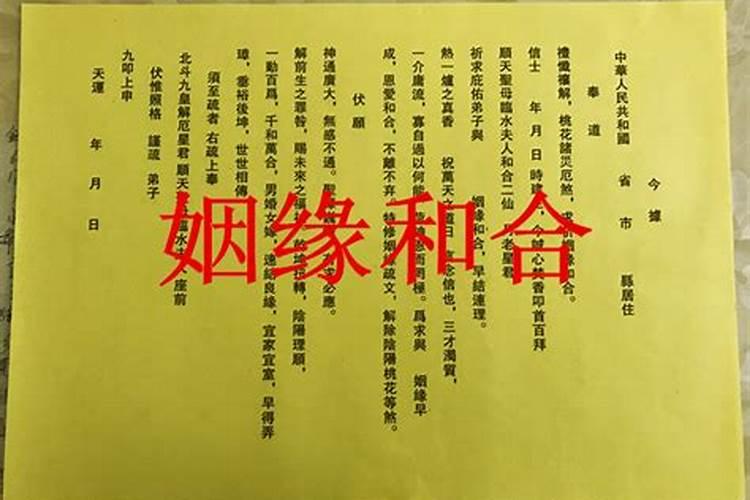 今據
中華人民共和國 省 市 縣居住
奉 道
禮懺禳解,桃花諸災厄煞,求 姻緣和合。
信士 年 月 日 時建 ,今誠心焚香叩首百拜
順天聖母臨水夫人和合二仙 月老星君
祈求庇佑弟子與 姻緣和合,早結連理。
熱一爐之真香 祝萬天之道日 念信也,三才濁質,
一介庸流,寡自過以何能 而罔極。爲求與 姻緣早
成,恩愛和合,不離不弃,特修姻緣疏文,解除陰陽桃花等煞。
伏願
神通廣大,無感不通。聖 求必應。
解前生之罪咎,賜未來之福 轉,陰陽理順,
一勤百爲,千和萬合,男婚女嫁,速結良緣,宜家宜室,早得弄
璋,垂裕後坤,世世相傳
須至疏者 右疏上奉
北斗九皇解厄星君 順天 臨水夫人 座前
伏惟照格 謹疏 弟子
九叩上申
天運 年 月 日
姻缘和合